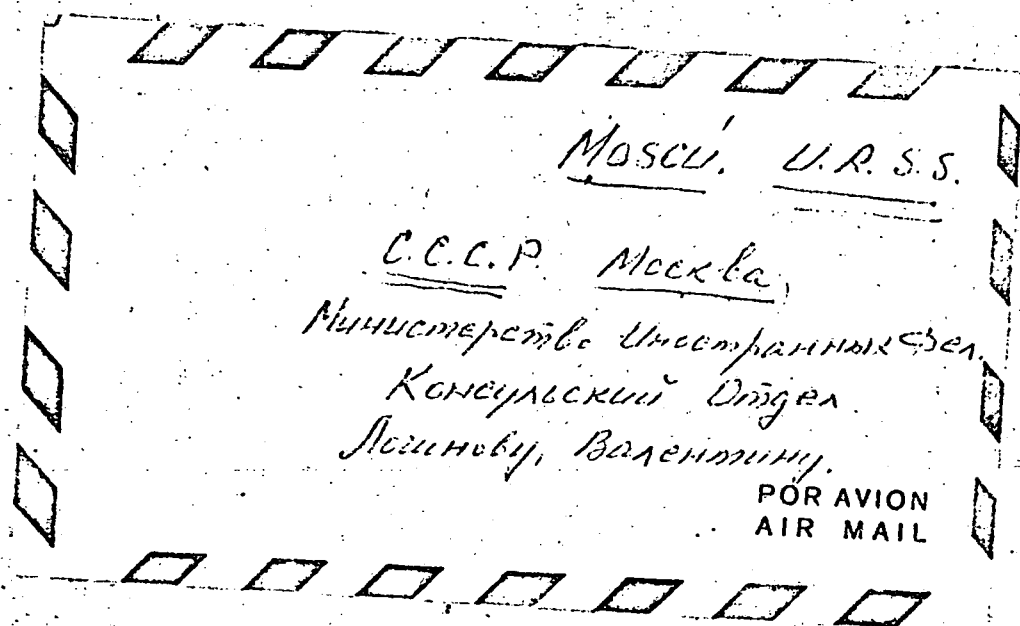 Moscú. U.R.S.S.
С.С.С.Р. Москва,
Министерство Иностранных Дел.
Консульский Отдел
Логинову, Валентину.
POR AVION
AIR MAIL